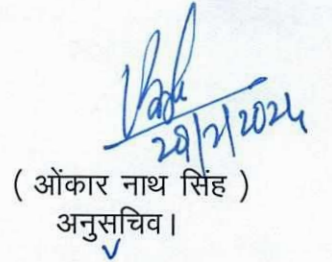 29/2/2024
( ओंकार नाथ सिंह )
अनुसचिव।